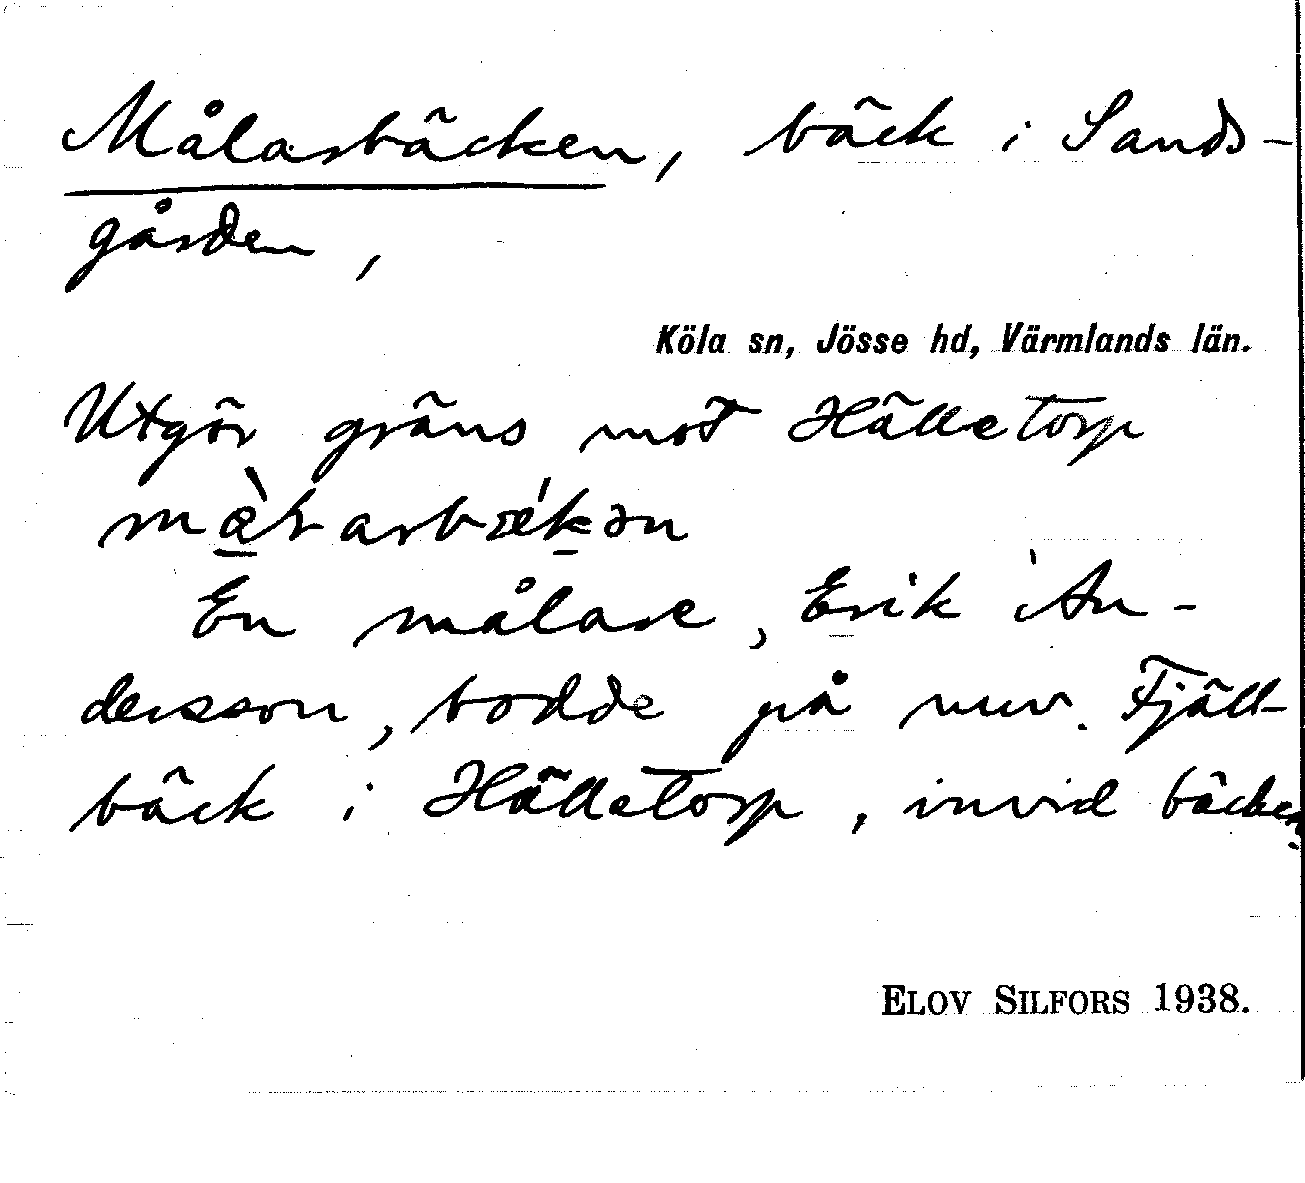 Målarbäcken, bäck i Sands-
gården,
Köla sn, Jösse hd, Värmlands län.
Utgör gräns mot Hälletorp
En målare, Erik An-
dersson, bodde på nuv. Fjäll-
bäck i Hälletorp, invid bäcken.
ELOV SILFORS 1938.